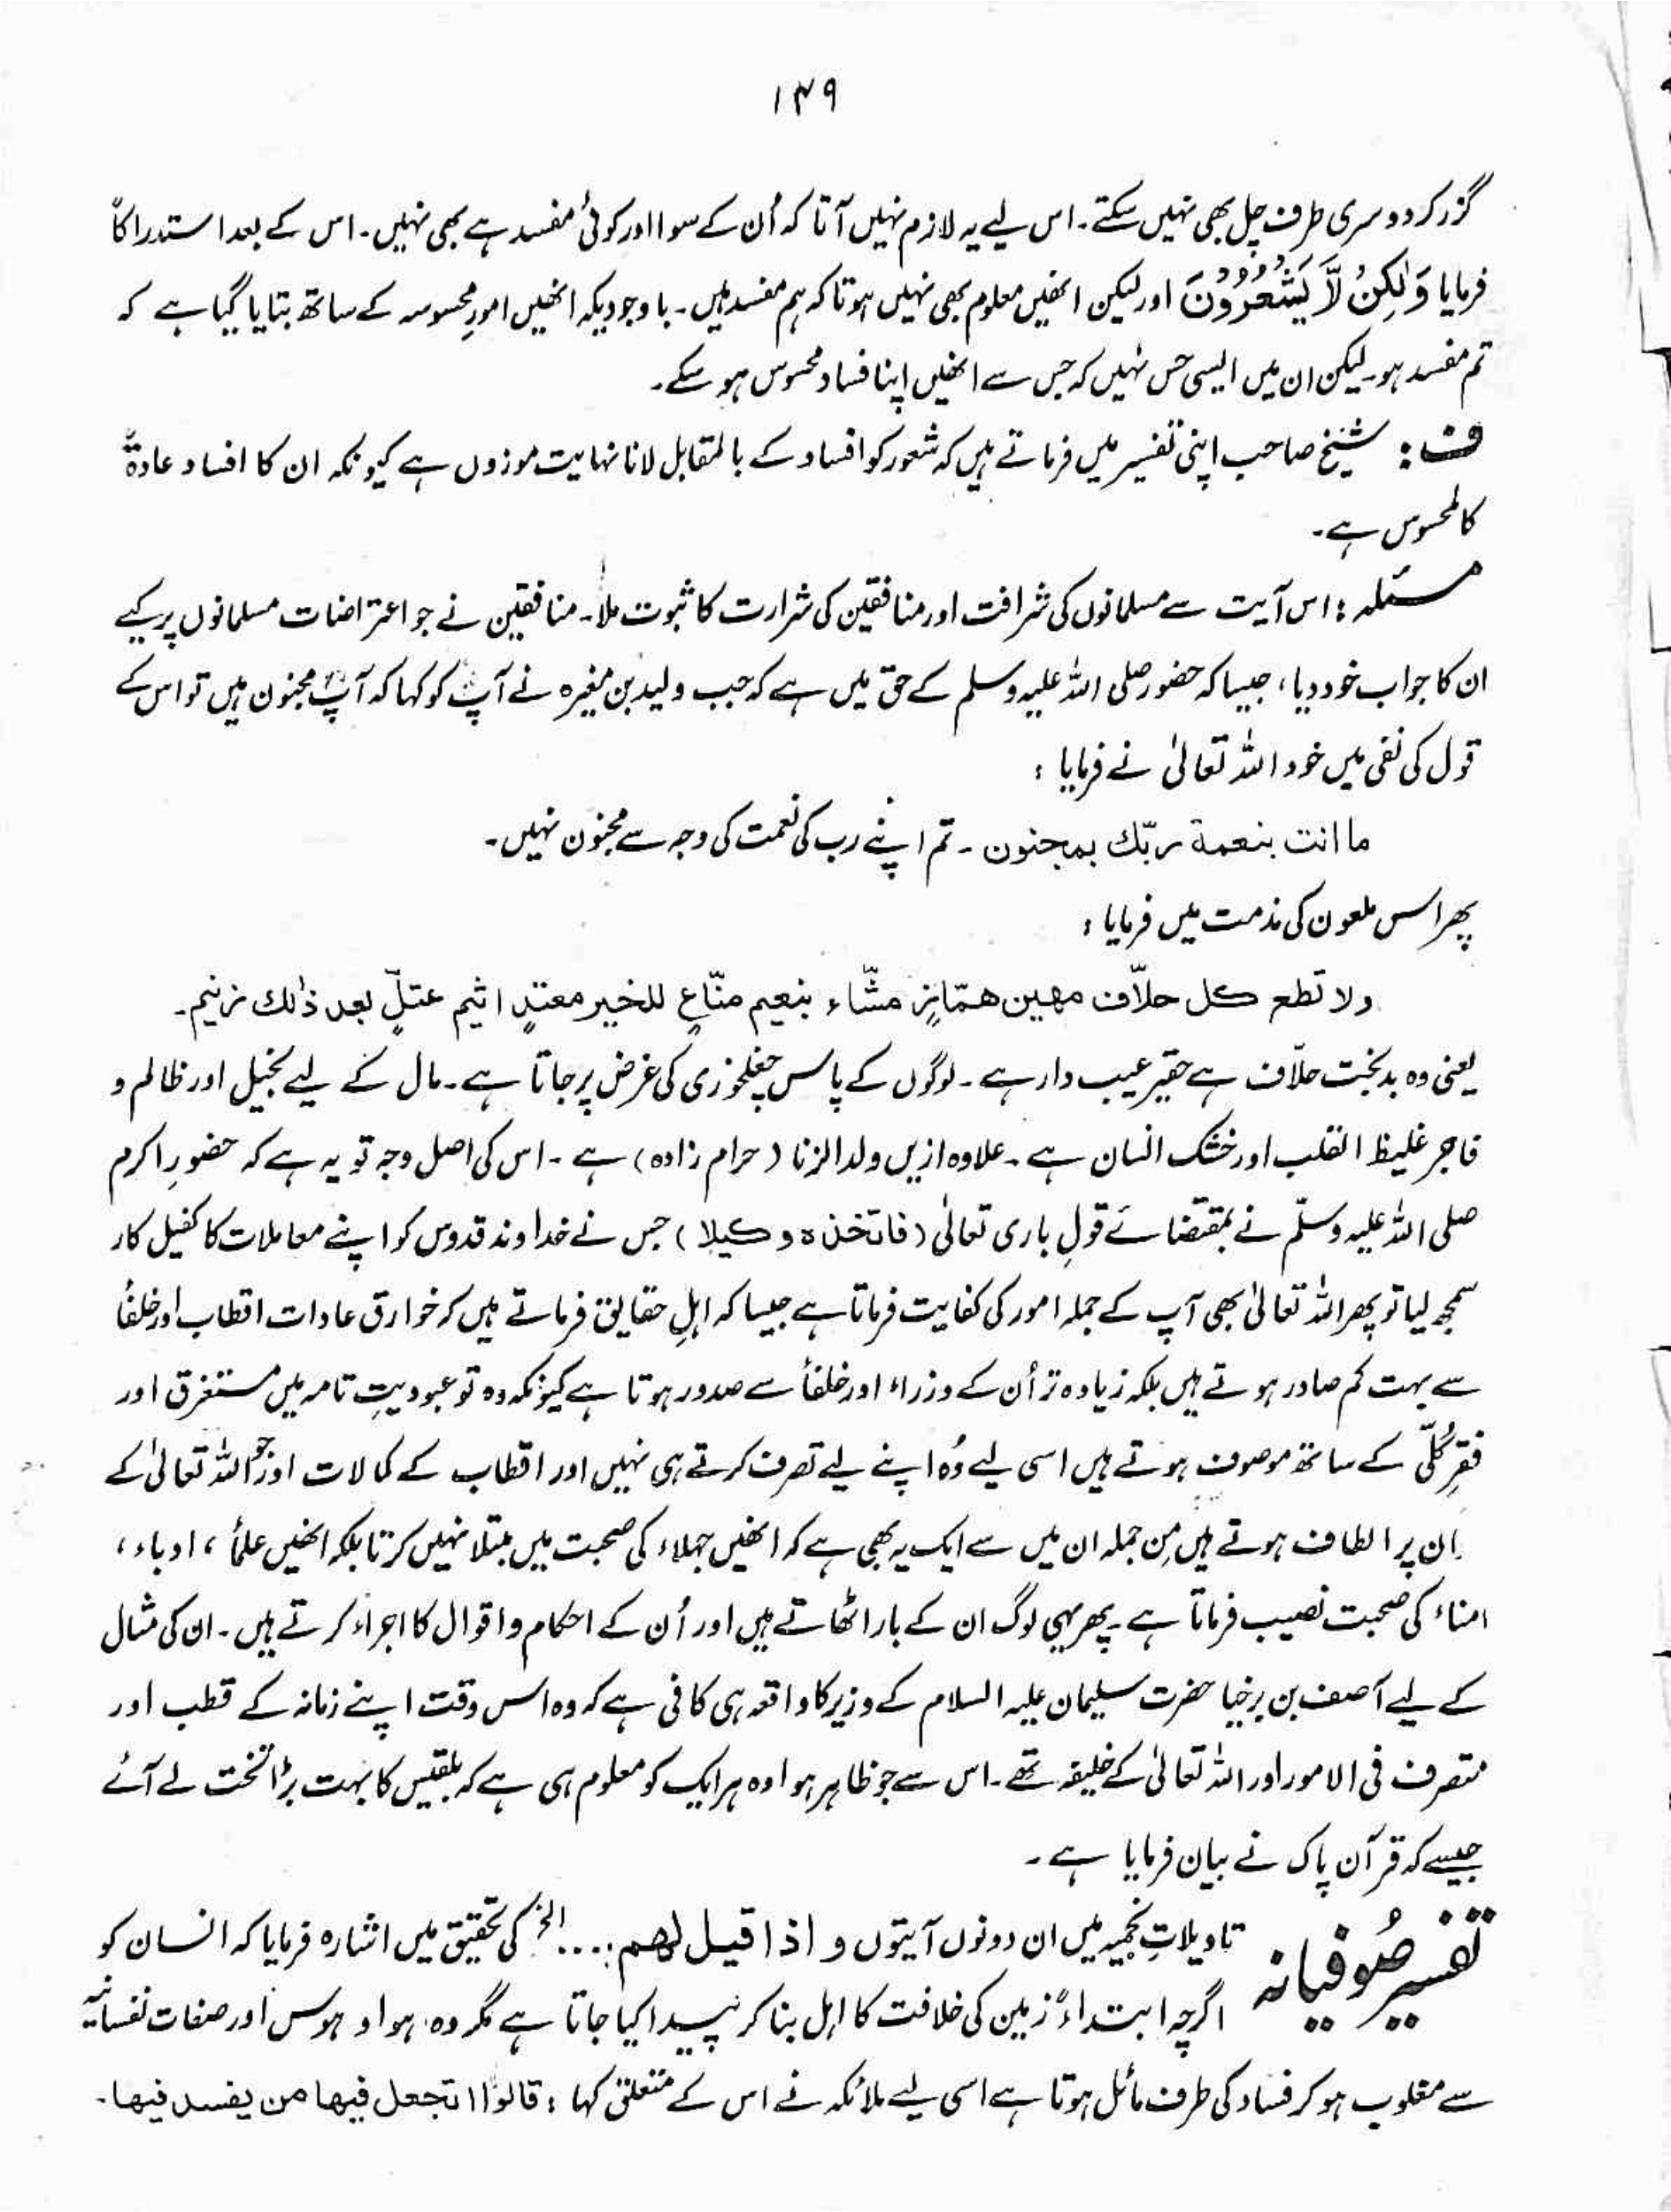 ۱۳۹
گزر کر دوسری طرف چل بھی نہیں سکتے۔ اس لیے یہ لازم نہیں آتا کہ اُن کے سوا اور کوئی مفسد ہے بھی نہیں۔ اس کے بعد استدراکاً
فرمایا وَلٰكِنْ لَّا يَشْعُرُوْنَ اور لیکن انھیں معلوم بھی نہیں ہوتا کہ ہم مفسد ہیں۔ باوجودیکہ انھیں امورِ محسوسہ کے ساتھ بتایا گیا ہے کہ
تم مفسد ہو۔ لیکن ان میں ایسی حس نہیں کہ جس سے انھیں اپنا فساد محسوس ہو سکے۔
ف : شیخ صاحب اپنی تفسیر میں فرماتے ہیں کہ شعور کو افساد کے بالمقابل لانا نہایت موزوں ہے کیونکہ ان کا افساد عادۃً
کالمحسوس ہے۔
مسئلہ : اس آیت سے مسلمانوں کی شرافت اور منافقین کی شرارت کا ثبوت ملا۔ منافقین نے جو اعتراضات مسلمانوں پر کیے
ان کا جواب خود دیا، جیسا کہ حضور صلی اللہ علیہ وسلم کے حق میں ہے کہ جب ولید بن مغیرہ نے آپ کو کہا کہ آپ مجنون ہیں تو اس کے
قول کی نفی میں خود اللہ تعالیٰ نے فرمایا :
ما انت بنعمة ربّك بمجنون۔ تم اپنے رب کی نعمت کی وجہ سے مجنون نہیں۔
پھر اس ملعون کی مذمت میں فرمایا :
ولا تطع كل حلّاف مهين همّازٍ مشّاء بنعيم منّاعٍ للخير معتدٍ اثيم عتلٍّ بعد ذٰلك زنيم۔
یعنی وہ بدبخت حلّاف ہے حقیر عیب دار ہے۔ لوگوں کے پاس چغلخوری کی غرض پر جاتا ہے۔ مال کے لیے بخیل اور ظالم و
فاجر غلیظ القلب اور خشک انسان ہے۔ علاوہ ازیں ولد الزنا (حرام زادہ) ہے۔ اس کی اصل وجہ تو یہ ہے کہ حضورِ اکرم
صلی اللہ علیہ وسلّم نے بمقتضائے قولِ باری تعالیٰ (فاتخذہ وکیلا) جس نے خداوند قدوس کو اپنے معاملات کا کفیل کار
سمجھ لیا تو پھر اللہ تعالیٰ بھی آپ کے جملہ امور کی کفایت فرماتا ہے جیسا کہ اہلِ حقایق فرماتے ہیں کہ خوارق عادات اقطاب اور خلفأ
سے بہت کم صادر ہوتے ہیں بلکہ زیادہ تر اُن کے وزراء اور خلفأ سے صدور ہوتا ہے کیونکہ وہ تو عبودیتِ تامہ میں مستغرق اور
فقرِ کُلّی کے ساتھ موصوف ہوتے ہیں اسی لیے وُہ اپنے لیے تصرف کرتے ہی نہیں اور اقطاب کے کمالات اور جو اللہ تعالیٰ کے
ان پر الطاف ہوتے ہیں مِن جملہ ان میں سے ایک یہ بھی ہے کہ انھیں جہلاء کی صحبت میں مبتلا نہیں کرتا بلکہ انھیں علمأ، ادباء،
امناء کی صحبت نصیب فرماتا ہے۔ پھر یہی لوگ ان کے بار اٹھاتے ہیں اور اُن کے احکام و اقوال کا اجراء کرتے ہیں۔ ان کی مثال
کے لیے آصف بن برخیا حضرت سلیمان علیہ السلام کے وزیر کا واقعہ ہی کافی ہے کہ وہ اس وقت اپنے زمانہ کے قطب اور
متصرف فی الامور اور اللہ تعالیٰ کے خلیفہ تھے۔ اس سے جو ظاہر ہوا وہ ہر ایک کو معلوم ہی ہے کہ بلقیس کا بہت بڑا تخت لے آئے
جیسے کہ قرآن پاک نے بیان فرمایا ہے۔
تفسیر صُوفیانہ تاویلاتِ نجمیہ میں ان دونوں آیتوں و اذا قیل لھم .... الخ کی تحقیق میں اشارہ فرمایا کہ انسان کو
اگرچہ ابتداءً زمین کی خلافت کا اہل بنا کر پیدا کیا جاتا ہے مگر وہ ہوا و ہوس اور صفات نفسانیہ
سے مغلوب ہو کر فساد کی طرف مائل ہوتا ہے اسی لیے ملائکہ نے اس کے متعلق کہا : قالوا اتجعل فیھا من یفسد فیھا۔